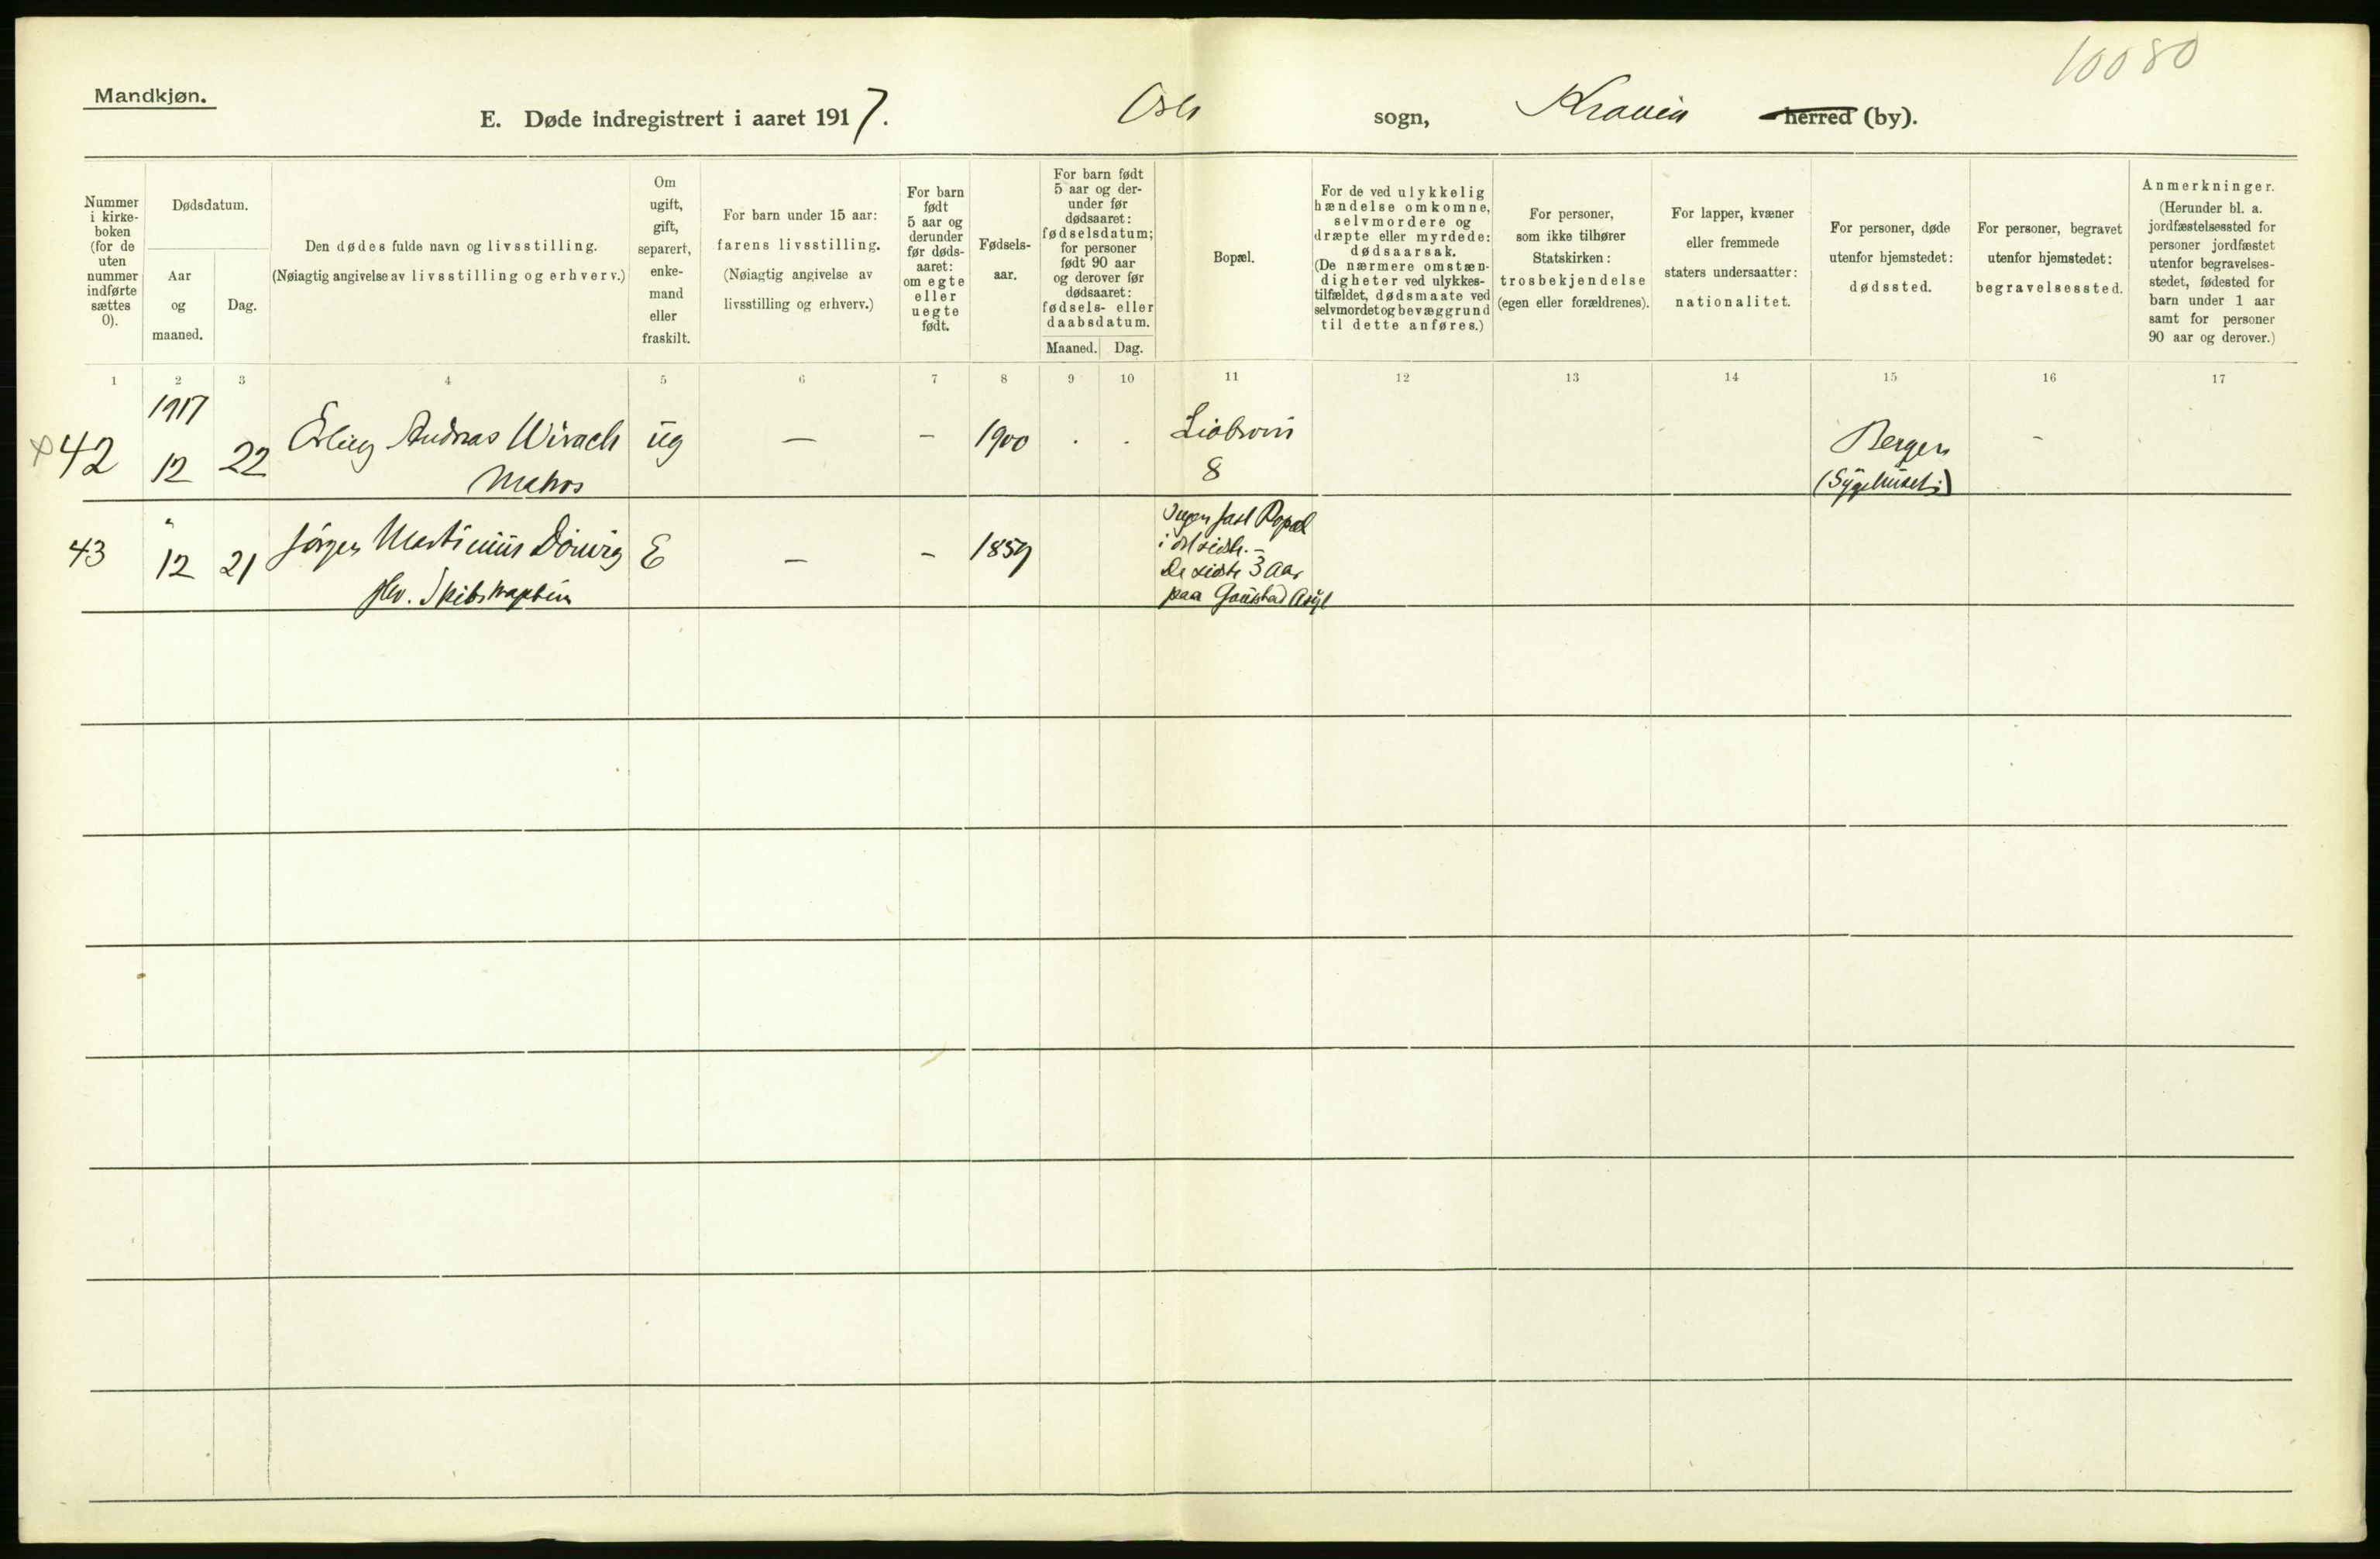 10080
Mandkjøn.
E. Døde indregistrert i aaret 1917. Oslo sogn, Kra herred (by).
Nummer i kirkeboken (for de uten nummer indførte sættes 0).
Dødsdatum.
Aar og maaned.
Dag.
Den dødes fulde navn og livsstilling.
(Nøiagtig angivelse av livsstilling og erhverv.)
Om ugift, gift, separert, enkemand eller fraskilt.
For barn under 15 aar:
farens livsstilling.
(Nøiagtig angivelse av
livsstilling og erhverv.)
For barn født 5 aar og derunder før dødsaaret: om egte eller uegte født.
Fødselsaar.
For barn født 5 aar og derunder før dødsaaret: fødselsdatum; for personer født 90 aar og derover før dødsaaret: fødsels- eller daabsdatum.
Maaned. Dag.
Bopæl.
For de ved ulykkelig hændelse omkomne, selvmordere og dræpte eller myrdede: dødsaarsak.
(De nærmere omstændigheter ved ulykkestilfældet, dødsmaate ved selvmordet og bevæggrund til dette anføres.)
For personer, som ikke tilhører Statskirken: trosbekjendelse (egen eller forældrenes).
For lapper, kvæner eller fremmede staters undersaatter: nationalitet.
For personer, døde utenfor hjemstedet: dødssted.
For personer, begravet utenfor hjemstedet: begravelsessted.
Anmerkninger.
(Herunder bl. a. jordfæstelsessted for personer jordfæstet utenfor begravelsesstedet, fødested for barn under 1 aar samt for personer 90 aar og derover.)
1 2 3 4 5 6 7 8 9 10 11 12 13 14 15 16 17
1917
x 42 12 22 Erling Andreas ug — - 1900 . . 8 Bergen -
Matros (Sygehuset)
43 " 12 21 Jørgen Martinius E — - 1859 Ingen fast Bopæl
fhv. Skibskaptein i sidste. -
De sidste 3 Aar
paa Gaustad Asyl